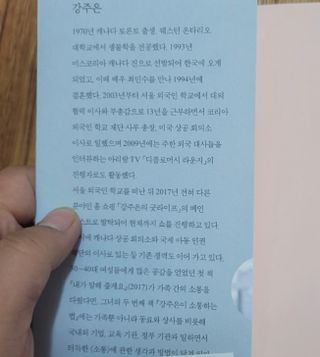 강주은
1970년 캐나다 토론토 출생. 웨스턴 온타리오
대학교에서 생물학을 전공했다. 1993년
미스코리아 캐나다 진으로 선발되어 한국에 오게
되었고, 이때 배우 최민수를 만나 1994년에
결혼했다. 2003년부터 서울 외국인 학교에서 대외
협력 이사와 부총감으로 13년을 근무하면서 코리아
외국인 학교 재단 사무 총장, 미국 상공 회의소
이사로 일했으며 2009년에는 주한 외국 대사들을
인터뷰하는 아리랑 TV 『디플로머시 라운지』의
진행자로도 활동했다.
서울 외국인 학교를 떠난 뒤 2017년 전혀 다른
분야인 홈 쇼핑 『강주은의 굿라이프』의 메인
스트로 발탁되어 현재까지 쇼를 진행하고 있다.
에 캐나다 상공 회의소와 국제 아동 인권
단의 이사로 있는 등 기존 경력도 이어 가고 있다.
30~40대 여성들에게 많은 공감을 얻었던 첫 책
『내가 말해 줄게요』(2017)가 가족 간의 소통을
다뤘다면, 그녀의 두 번째 책 『강주은이 소통하는
법』에는 가족뿐 아니라 동료와 상사를 비롯해
국내외 기업, 교육 기관, 정부 기관과 일하면서
터득한 〈소통〉에 관한 생각과 방법이 담겨